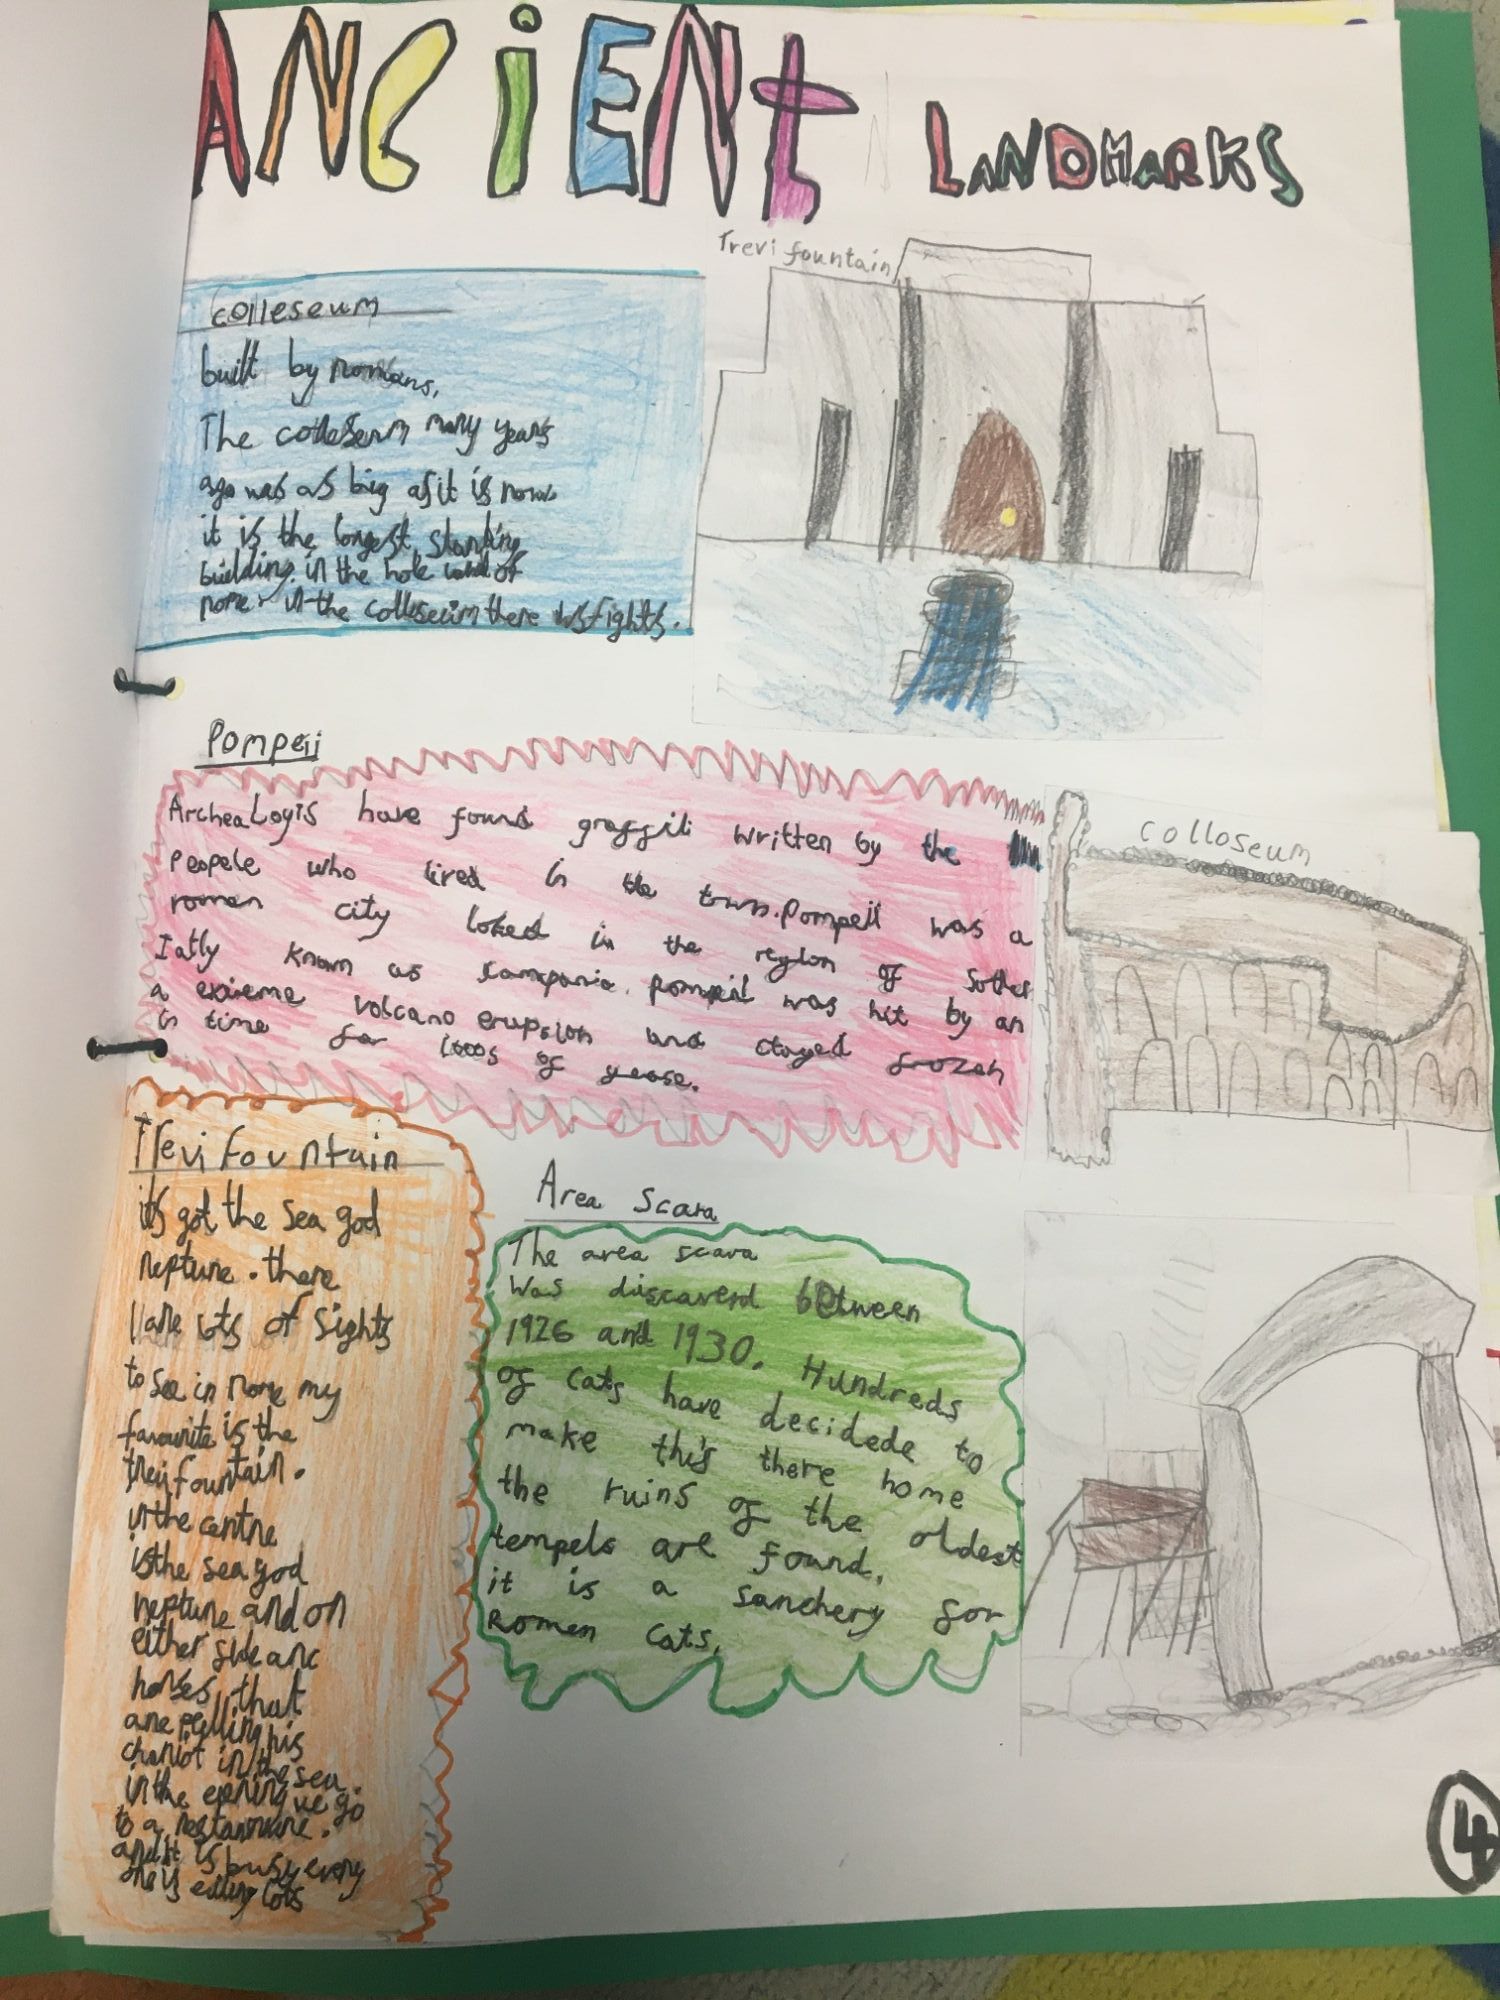 ANCiENt LANDMARKS
Trevi fountain
colleseum
built by romans.
The colleseum many years
ago was as big as it is now.
it is the longest standing
building in the hole land of
rome. in the colluseum there was fights.
Pompeii
ArcheaLogis have found graffiti written by the
Peopele who lired in the town. Pompeii was a
roman city loked in the region of Sother
Iatly known as campania. Pompeii was hit by an
a exieme volcano erupsion and stayed frozen
in time for 1000s of yease.
colloseum
Trevi fountain
it's got the sea god
neptune. there
are lots of sights
to see in rome my
favourite is the
trevi fountain.
in the centre
is the sea god
neptune and on
either side are
horses that
are pulling his
chariot in the sea.
in the evening we go
to a
and it is busy every
one is eating lots
Area Scara
The area scara
was discaverd between
1926 and 1930. Hundreds
of cats have decidede to
make this there home
the ruins of the oldest
tempels are found.
it is a sanchery for
Romen cats.
4